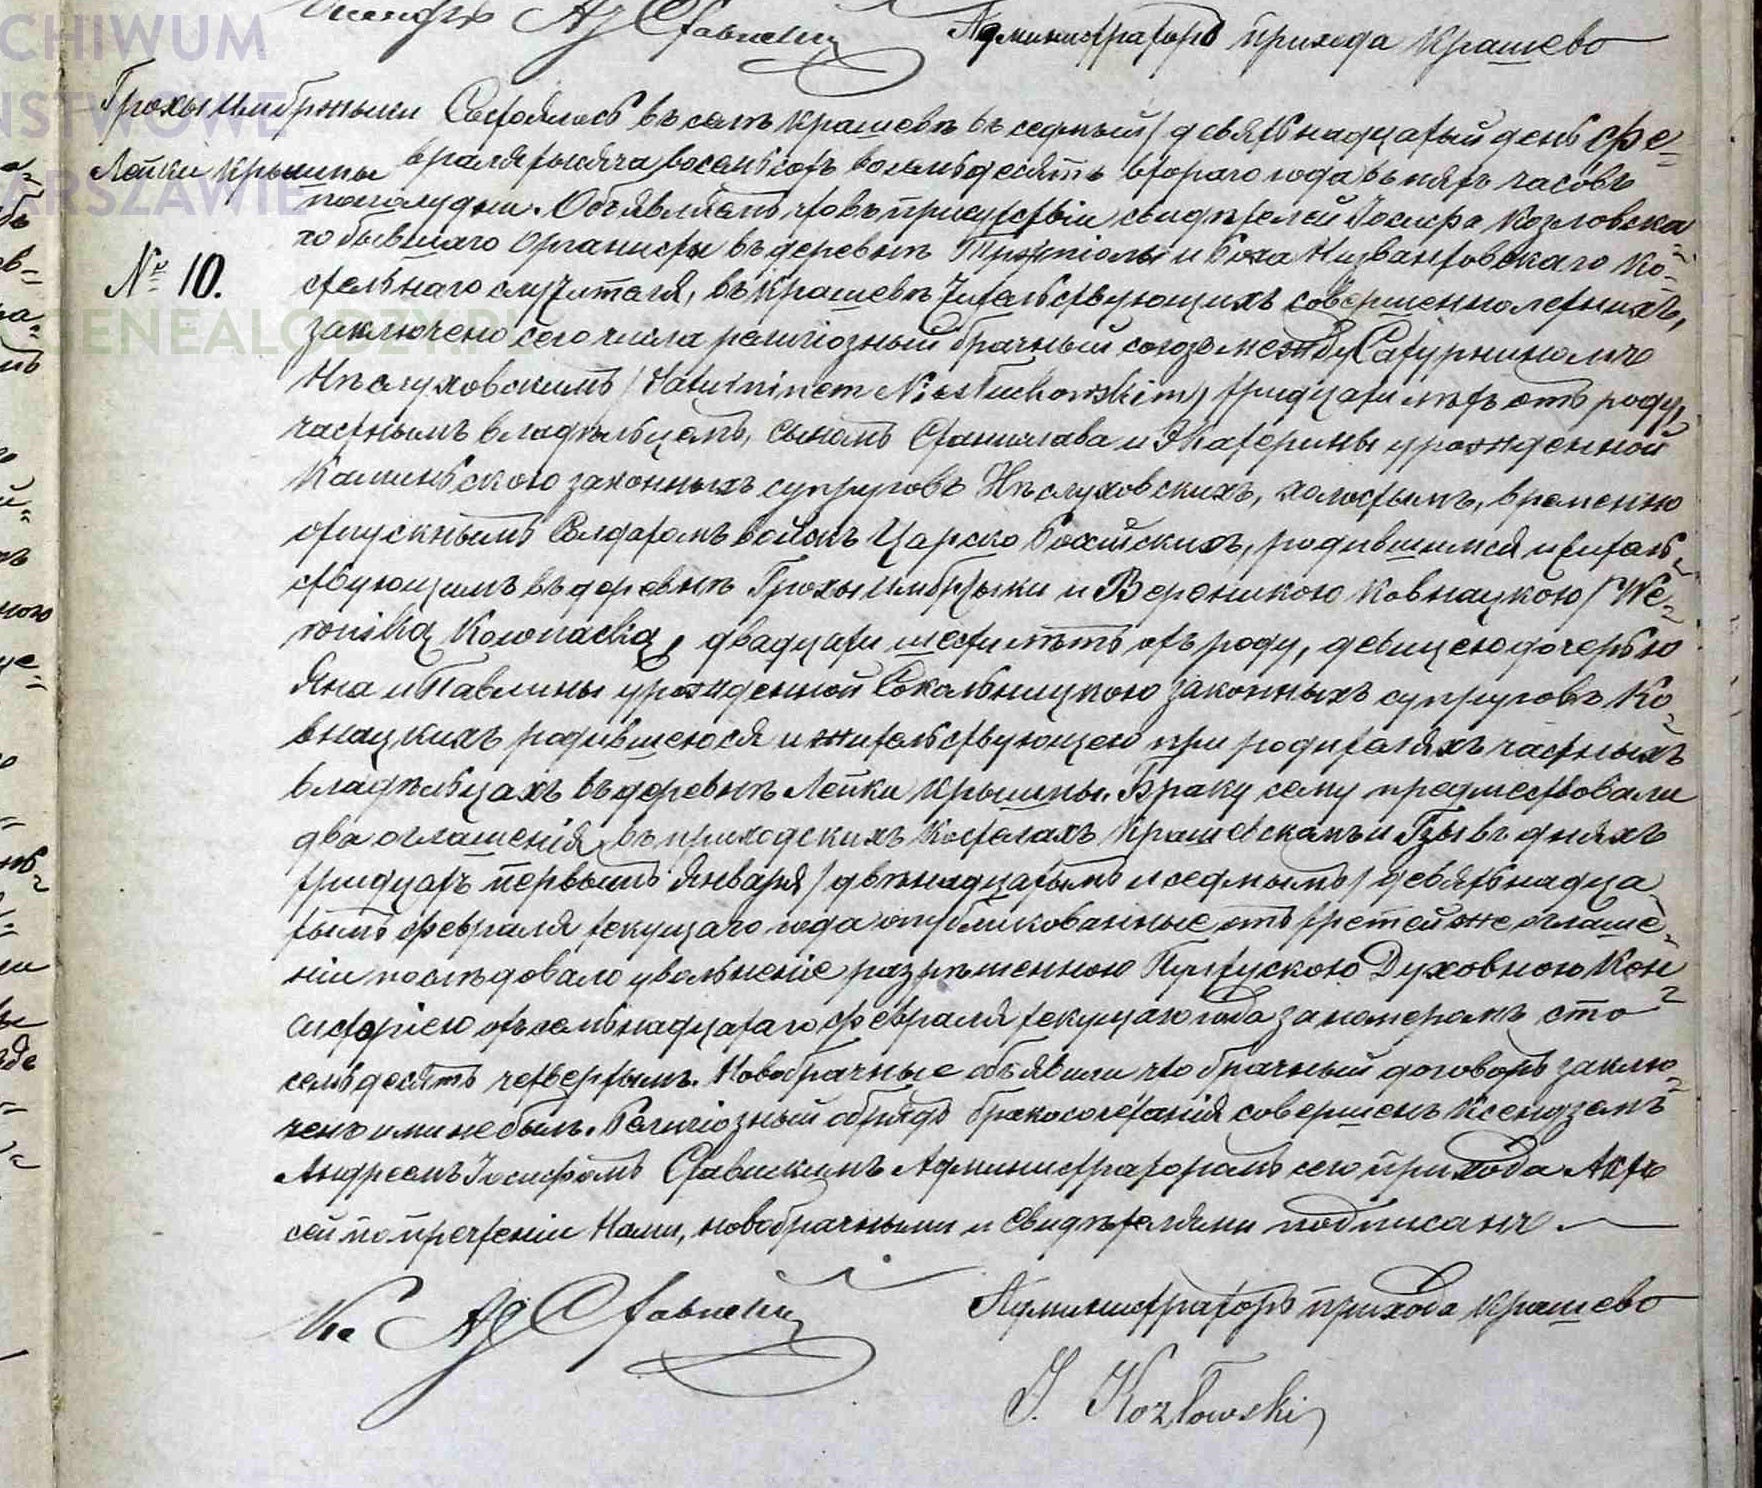 Администраторъ прихода Крашево
Грохы Имбржыки
Лейки Крышпы
№ 10.
Состоялось въ селѣ Крашевѣ въ седмый / девятьнадцатый день Фе-
враля тысяча восемьсотъ восемьдесятъ втораго года въ пять часовъ
пополудни. Объявляемъ что въ присутствіи свидѣтелей Іосифа Козловска-
го бывшаго Органисты въ деревнѣ и Роха Низвантовскаго Ко-
стельнаго служителя, въ Крашевѣ жительствующихъ совершеннолетнихъ,
заключено сего числа религіозный брачный союзъ между Сатурниномъ
Нѣслуховскимъ / Saturninem Niesłuchowskim / тридцати лѣтъ отъ роду,
частнымъ владѣльцемъ, сыномъ Станислава и Екатерины урожденной
Каминьскою законныхъ супруговъ Нѣслуховскихъ, холостымъ, временно
отпускнымъ Солдатомъ войскъ Царско Россійскихъ, родившимся и житель-
ствующимъ въ деревнѣ Грохы Имбрзыки и Вероникою Ковнацкою / We-
roniką Kownacką, двадцати шести лѣтъ отъ роду, девицею дочерью
Яна и Павлины урожденной Сокальницкою законныхъ супруговъ Ко-
внацкихъ родившеюся и жительствующею при родителяхъ частныхъ
владѣльцахъ въ деревнѣ Лейки Крышпы. Браку сему предшествовали
два оглашенія въ приходскихъ Костелахъ Крашевскомъ и Гзы въ дняхъ
тридцать первымъ Января / двѣнадцатымъ и седмымъ / девятьнадца-
тымъ февраля текущаго года опубликованные отъ третей же оглаше-
ніи последовало увольненіе разрѣшенною Пултускою Духовною Кон-
систоріею отъ семьнадцатаго февраля текущаго года за номеромъ сто
семьдесятъ четвертымъ. Новобрачные объявили что брачный договоръ заклю-
ченъ ими не былъ. Религіозный обрядъ бракосочетанія совершенъ Ксендземъ
Андреемъ Іосифомъ Ставискимъ Администраторомъ сего прихода Актъ
сей по прочтеніи Нами, новобрачными и свидѣтелями подписанъ.
Администраторъ прихода Крашево
J. Kozłowski